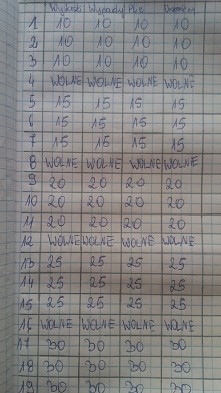 Wykroki Wypady Plie
1 10 10 10 10
2 10 10 10 10
3 10 10 10 10
4 WOLNE WOLNE WOLNE WOLNE
5 15 15 15 15
6 15 15 15 15
7 15 15 15 15
8 WOLNE WOLNE WOLNE WOLNE
9 20 20 20 20
10 20 20 20 20
11 20 20 20 20
12 WOLNE WOLNE WOLNE WOLNE
13 25 25 25 25
14 25 25 25 25
15 25 25 25 25
16 WOLNE WOLNE WOLNE WOLNE
17 30 30 30 30
18 30 30 30 30
19 30 30 30 30